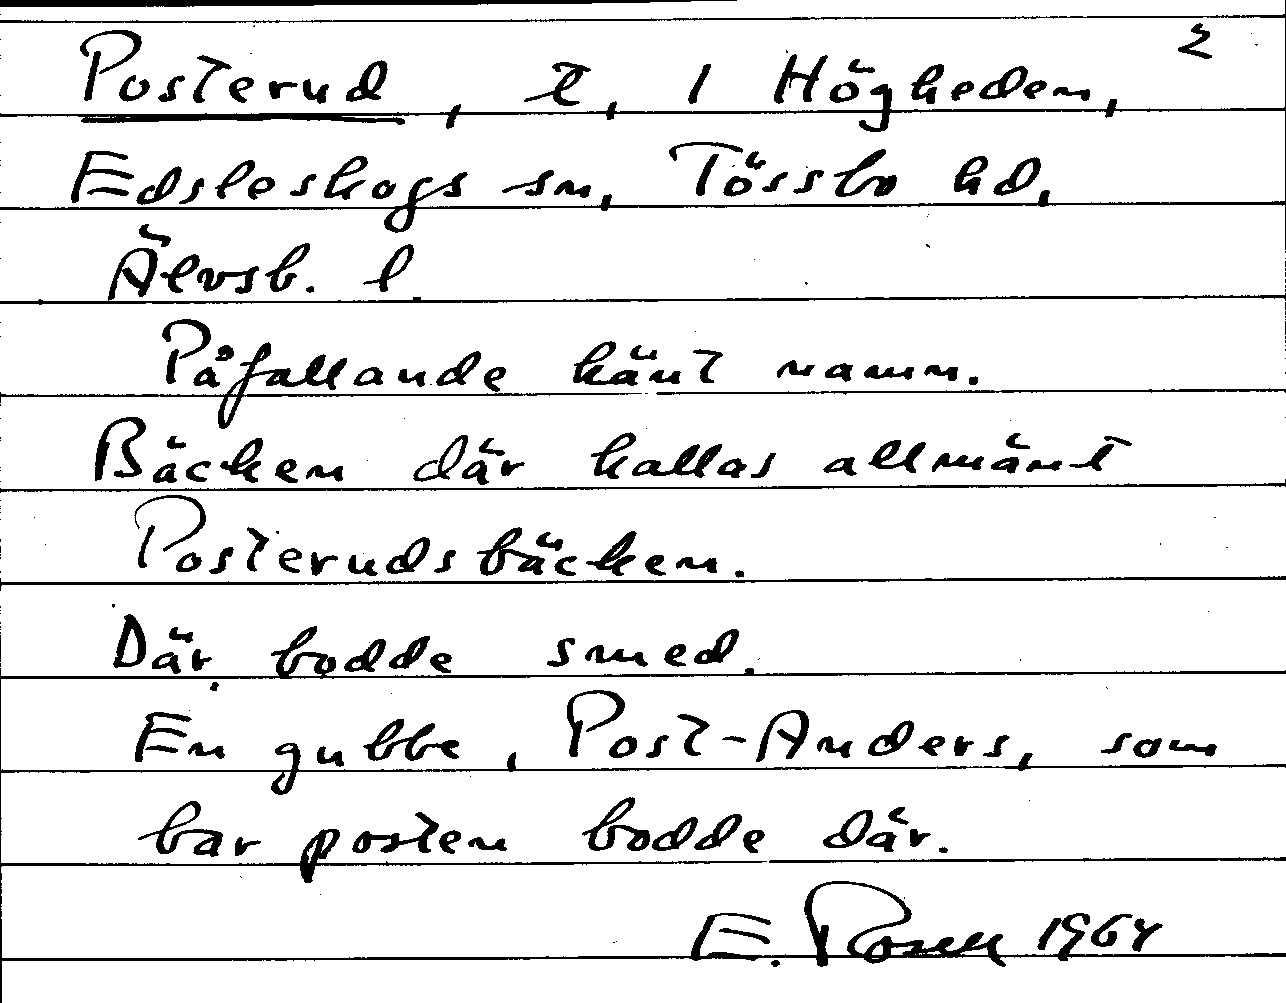 2
Posterud, t, 1 Högheden,
Edsleskogs sn, Tössbo hd,
Älvsb. l.
Påfallande känt namn.
Bäcken där kallas allmänt
Posterudsbäcken.
Där bodde smed.
En gubbe, Post-Anders, som
bar posten bodde där.
E. Rosell 1964